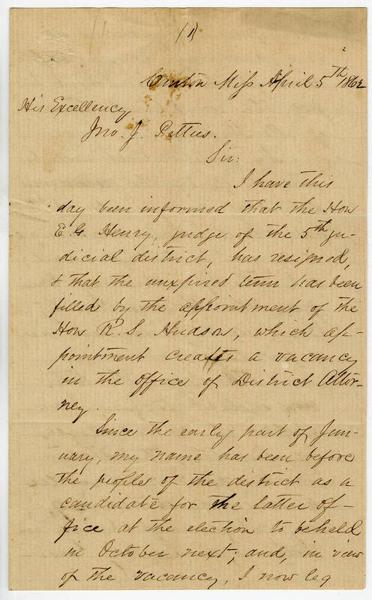 (1)
Canton Miss April 5th 1862
His Excellency
Jno. J. Pettus.
Sir:
I have this
day been informed that the Hon
E. G. Henry, judge of the 5th ju-
dicial district, has resigned,
& that the unexpired term has been
filled by the appointment of the
Hon R. S. Hudson, which ap-
pointment creates a vacancy
in the office of District Attor-
ney.
Since the early part of Jan-
uary, my name has been before
the peoples of the district as a
candidate for the latter of-
fice at the election to beheld
in October next; and, in view
of the vacancy, I now beg